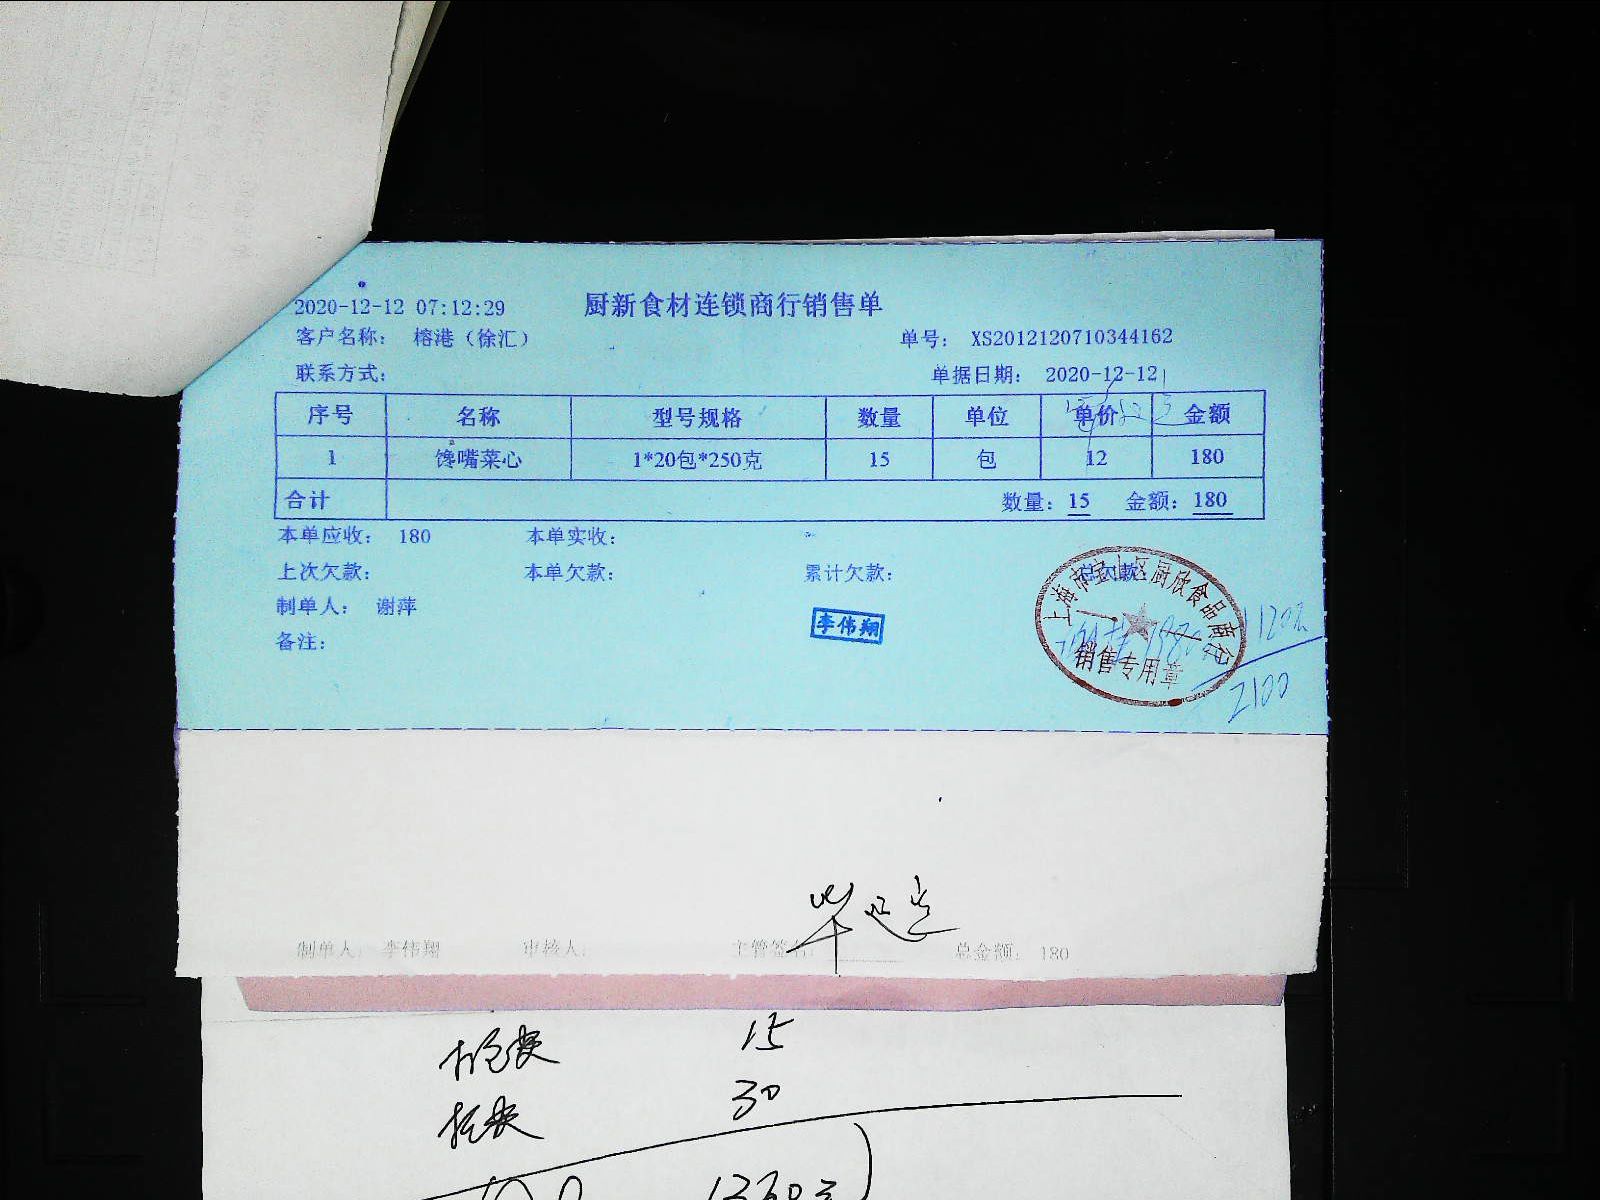 2020-12-12 07:12:29 厨新食材连锁商行销售单
客户名称： 榕港（徐汇） 单号： XS2012120710344162
联系方式： 单据日期： 2020-12-12
序号 名称 型号规格 数量 单位 单价 金额
1 馋嘴菜心 1*20包*250克 15 包 12 180
合计 数量：15 金额：180
本单应收： 180 本单实收：
上次欠款： 本单欠款： 累计欠款：
制单人： 谢萍
李伟翔
备注：
上海市宝山区厨欣食品商行
销售专用章
2100
制单人： 李伟翔 审核人： 主管签名： 总金额： 180
15
30